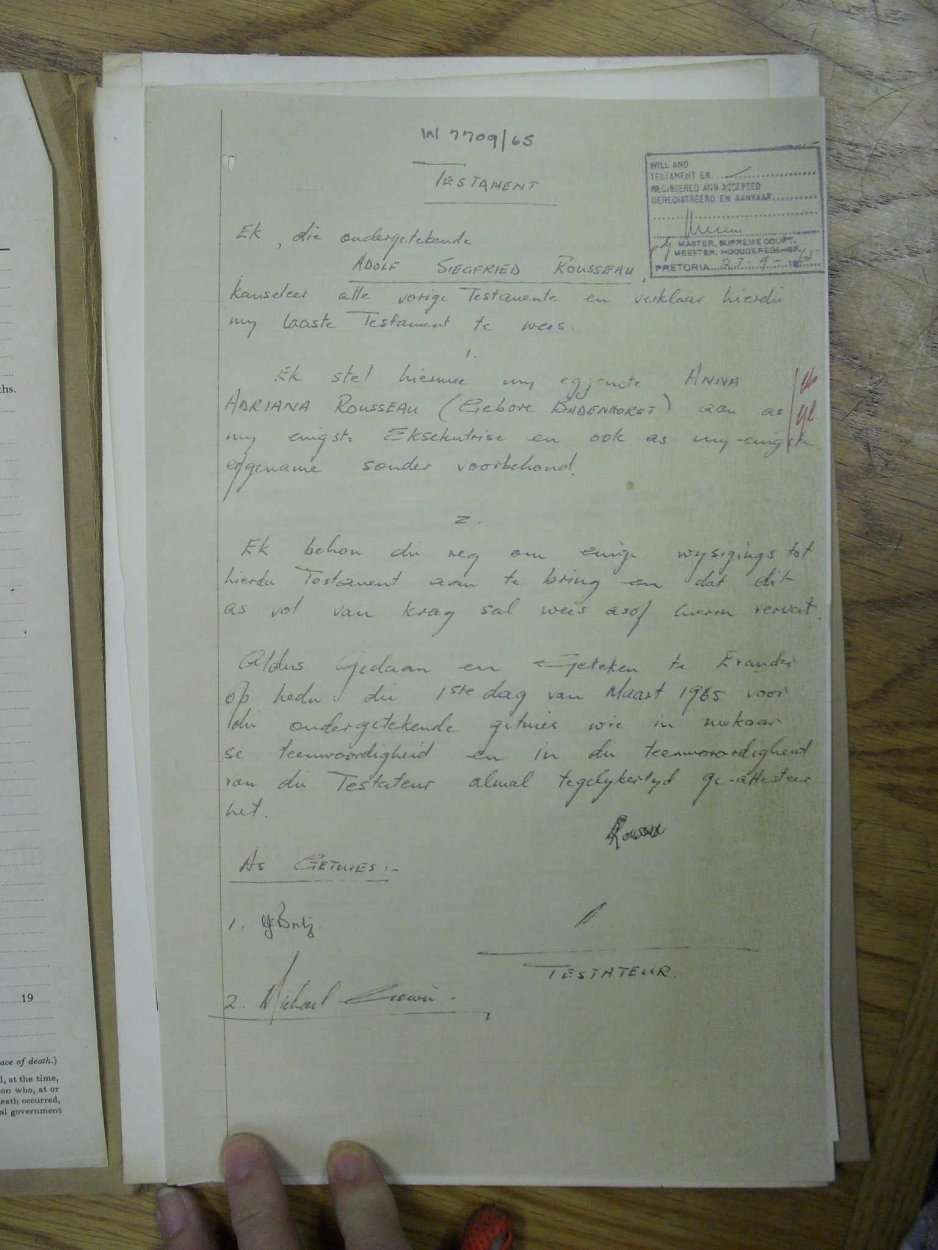 W 7709/65
TESTAMENT
WILL AND
TESTAMENT EN
REGISTERED AND ACCEPTED
GEREGISTREER EN AANVAAR
MASTER, SUPREME COURT.
MEESTER, HOOGGEREGSHOF.
PRETORIA
Ek, die ondergetekende
ADOLF SIEGFRIED ROUSSEAU,
kanseleer alle vorige Testamente en verklaar hierdie
my laaste Testament te wees.
1.
Ek stel hiermee my eggenote ANNA
ADRIANA ROUSSEAU (Gebore BADENHORST) aan as
my enigste Eksekutrise en ook as my enigste
erfgename sonder voorbehoud.
2.
Ek behou die reg om enige wysigings tot
hierdie Testament aan te bring en dat dit
as vol van krag sal wees asof hierin vervat.
Aldus Gedaan en Geteken te Evander
op hede die 1ste dag van Maart 1965 voor
die ondergetekende getuies wie in mekaar
se teenwoordigheid en in die teenwoordigheid
van die Testateur almal tegelykertyd ge-attesteer
het.
Rousseau
As GETUIES:-
1.
TESTATEUR.
2. Michael
ths.
19
ace of death.)
l, at the time,
on who, at or
eath occurred,
al government